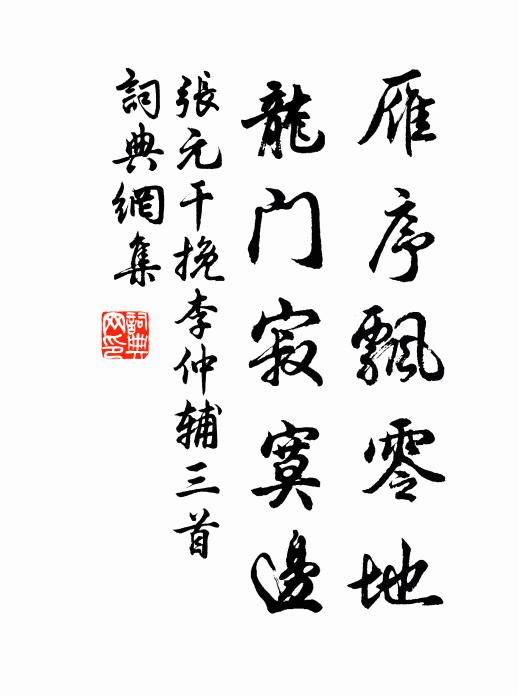 雁序飄零地
龍门寂寞邊
張元干挽李仲輔三首
詞典網集
詞典
网印